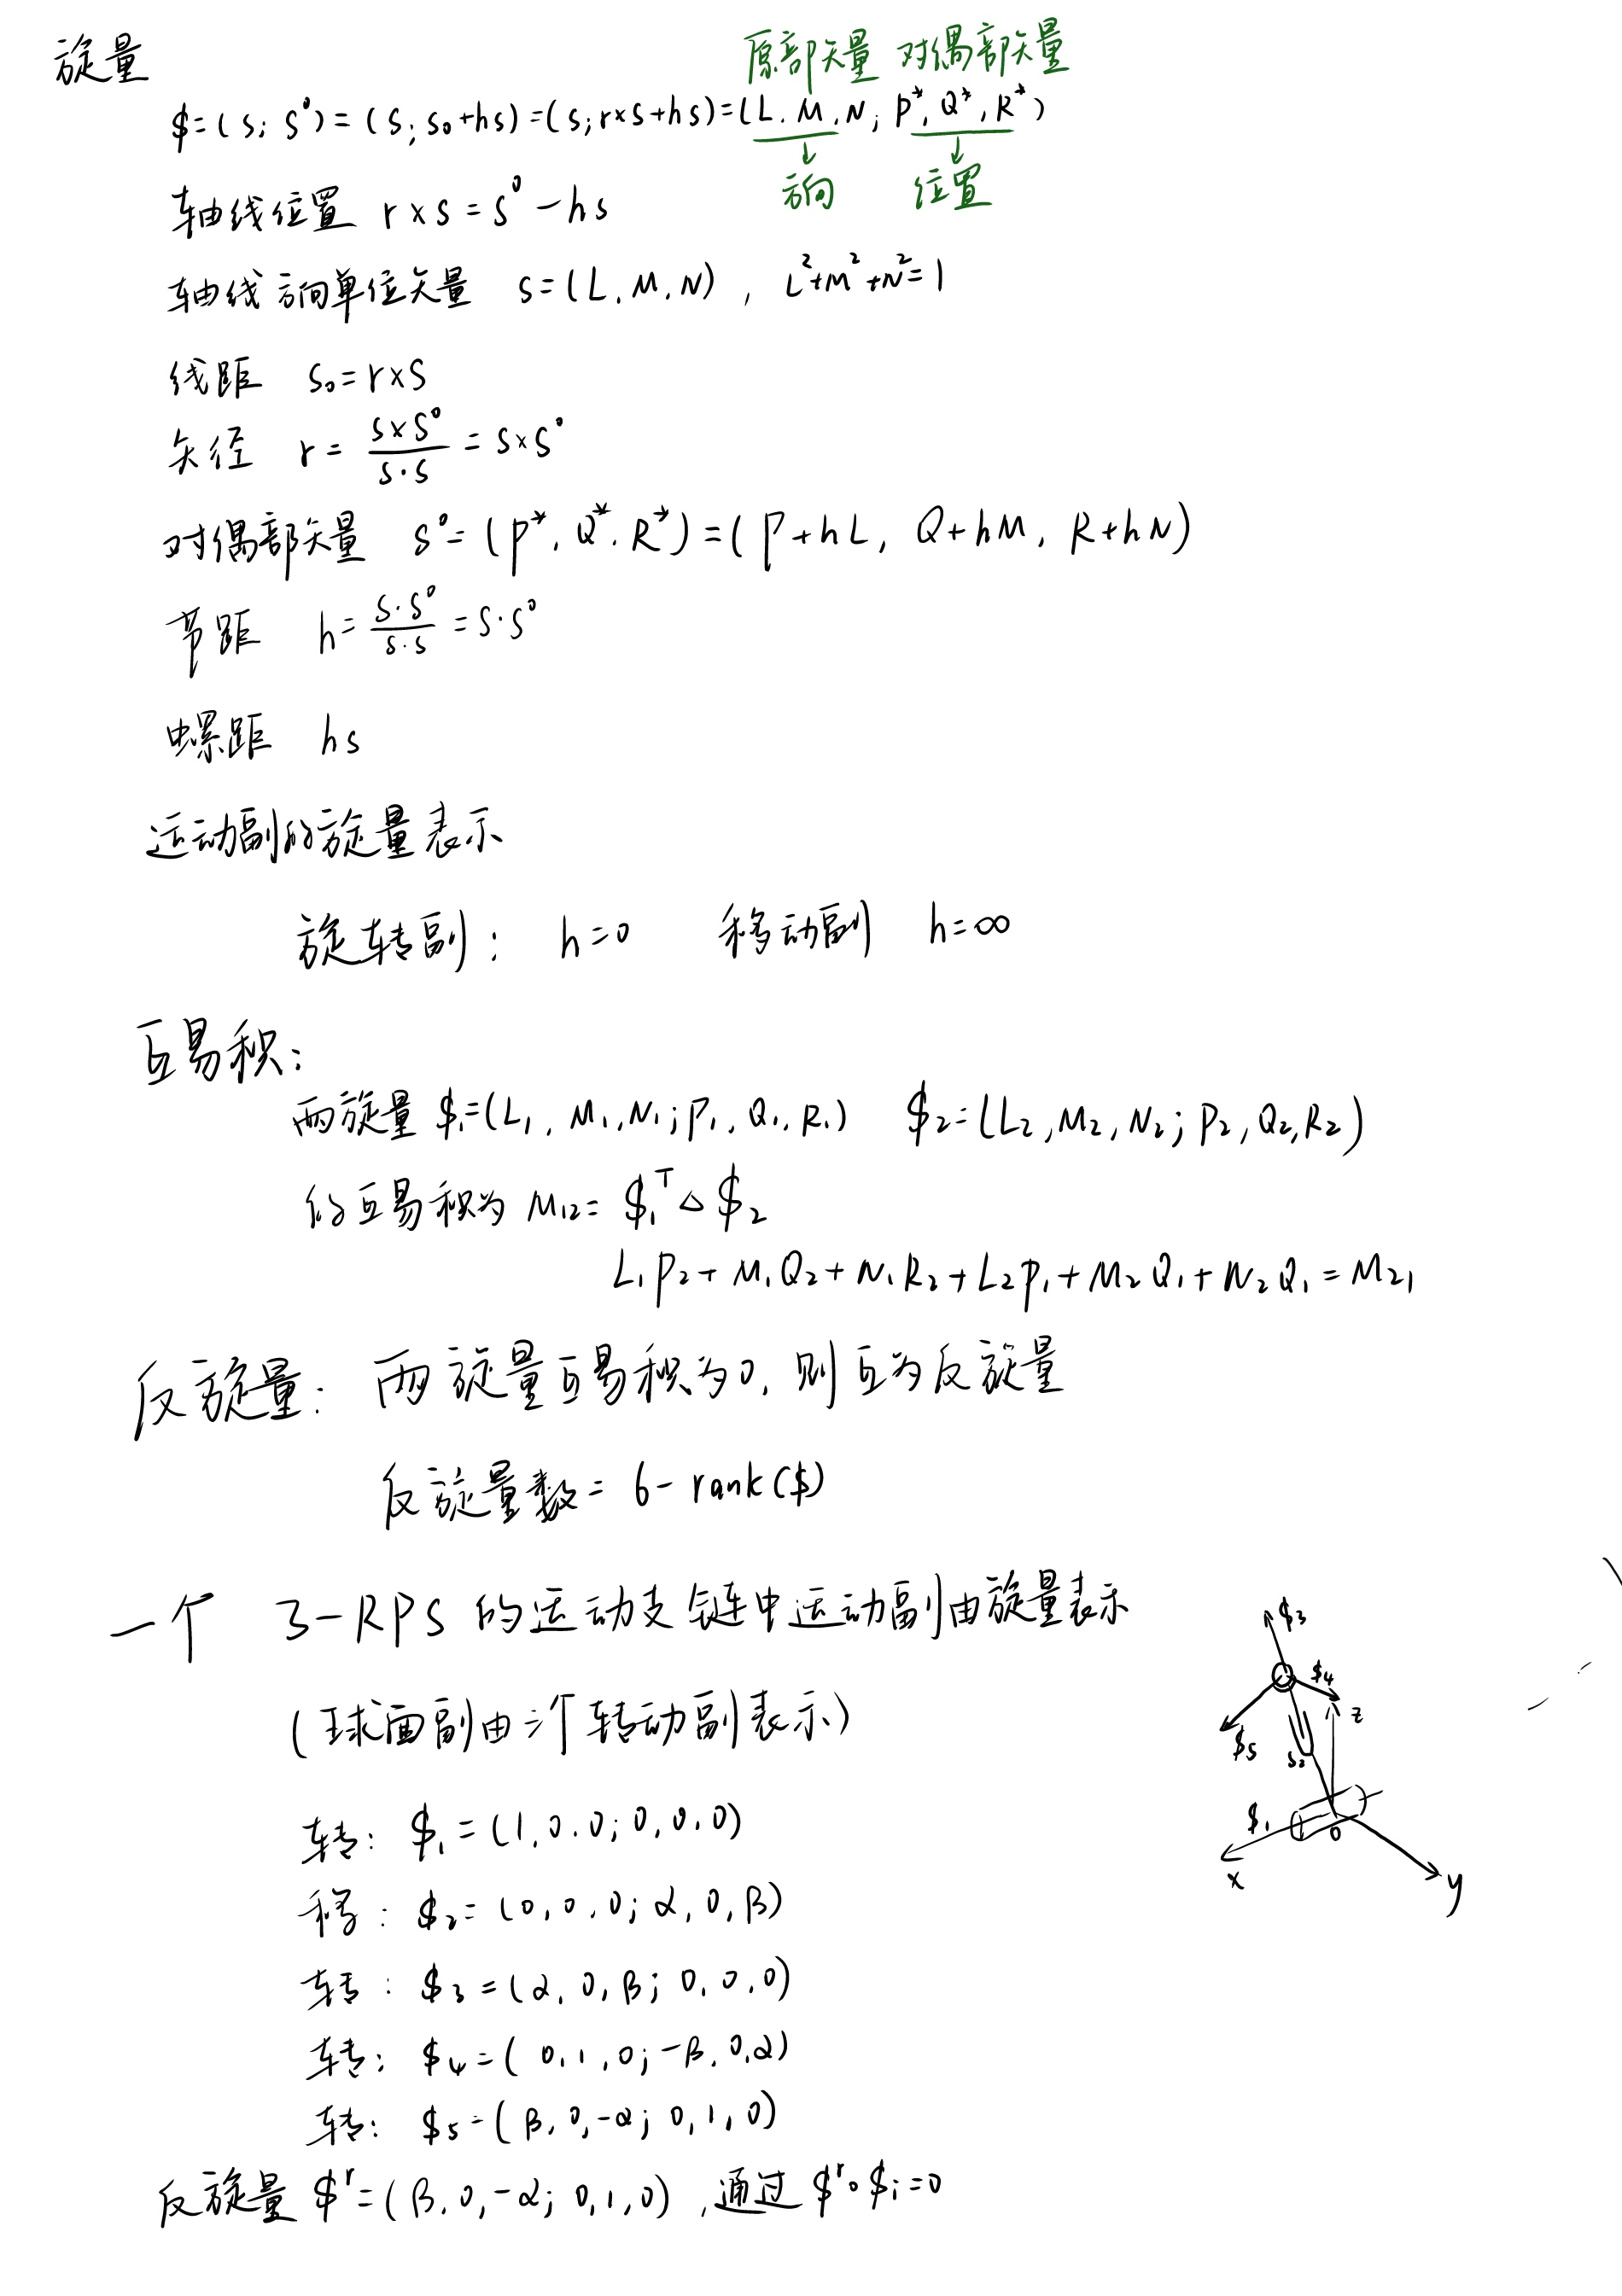 旋量
原部矢量 对偶部矢量
$=(s; s⁰)=(s; s₀+hs)=(s; r×s+hs)=(L, M, N; P*, Q*, R*)
方向 位置
轴线位置 r×s=s⁰-hs
轴线方向单位矢量 s=(L, M, N), L²+M²+N²=1
线距 s₀=r×s
矢径 r= (s×s⁰)/(s·s) = s×s⁰
对偶部矢量 s⁰=(P*, Q*, R*)=(P+hL, Q+hM, R+hN)
节距 h= (s·s⁰)/(s·s) = s·s⁰
螺距 hs
运动副的旋量表示
旋转副: h=0 移动副 h=∞
互易积:
两旋量 $₁=(L₁, M₁, N₁; P₁, Q₁, R₁) $₂=(L₂, M₂, N₂; P₂, Q₂, R₂)
的互易积为 M₁₂= $₁ᵀ△$₂
L₁P₂+M₁Q₂+N₁R₂+L₂P₁+M₂Q₁+N₂Q₁=M₂₁
反旋量: 两旋量互易积为0, 则互为反旋量
反旋量数=6-rank($)
一个 3-RPS 的运动支链中运动副由旋量表示
(球面副由三个转动副表示)
转: $₁=(1, 0, 0; 0, 0, 0)
移: $₂=(0, 0, 0; α, 0, β)
转: $₃=(α, 0, β; 0, 0, 0)
转: $₄=(0, 1, 0; -β, 0, α)
转: $₅=(β, 0, -α; 0, 1, 0)
反旋量 $ʳ=(β, 0, -α; 0, 1, 0), 通过 $ʳ∘$ᵢ=0
$₃
$₄
z
$₅
s₂
$₁
o
x
y